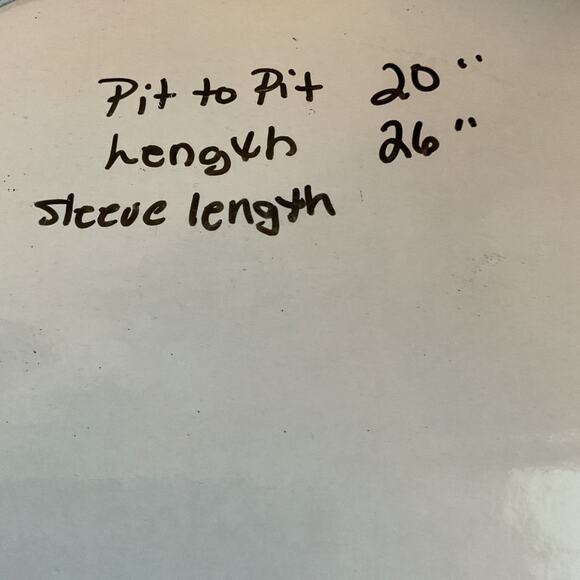 Pit to Pit 20"
Length 26"
Sleeve length